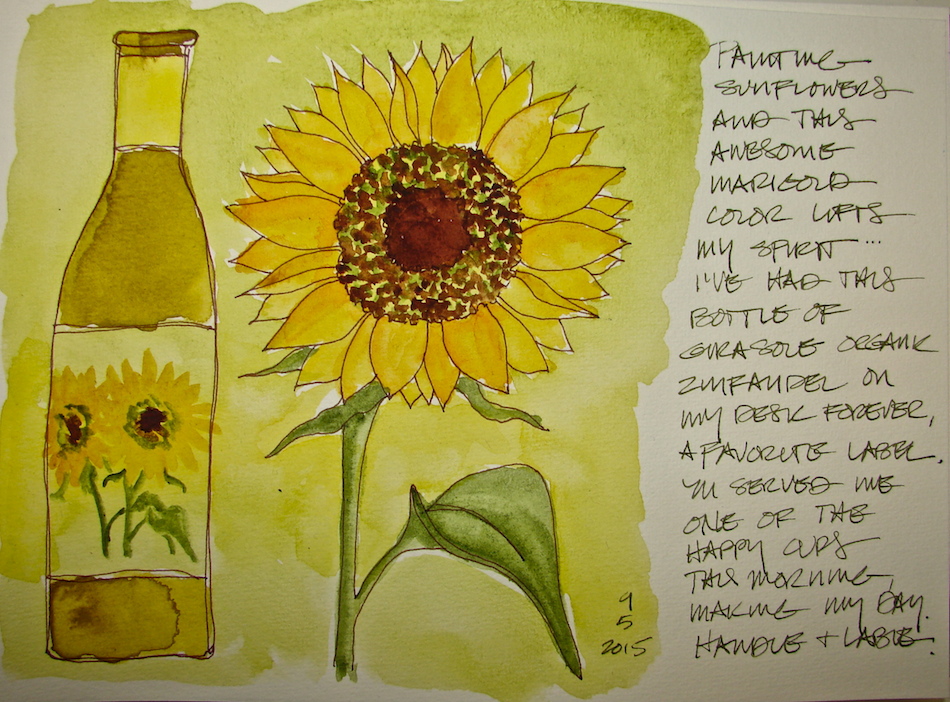 PAINTING
SUNFLOWERS
AND THIS
AWESOME
MARIGOLD
COLOR LIFTS
MY SPIRIT ...
I'VE HAD THIS
BOTTLE OF
GIRASOLE ORGANIC
ZINFANDEL ON
MY DESK FOREVER,
A FAVORITE LABEL.
SERVED ME
ONE OF THE
HAPPY CUPS
THIS MORNING,
MAKING MY DAY.
HANDLE + LABLE!
9
5
2015